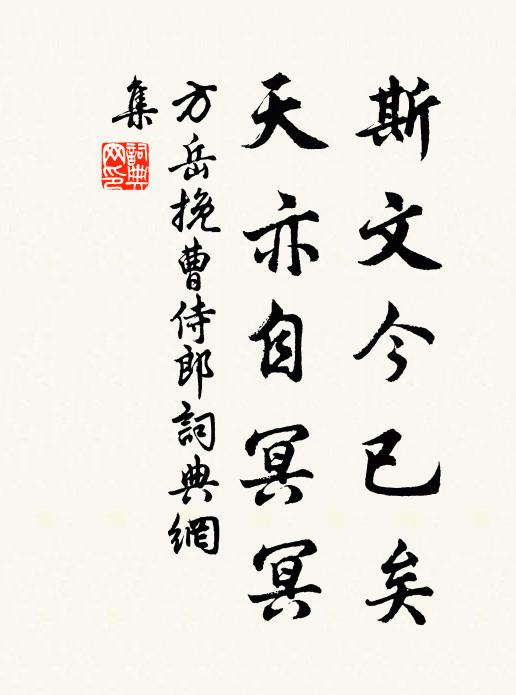 斯文今已矣
天亦自冥冥
方岳挽曹侍郎詞典網
集
詞典
网印